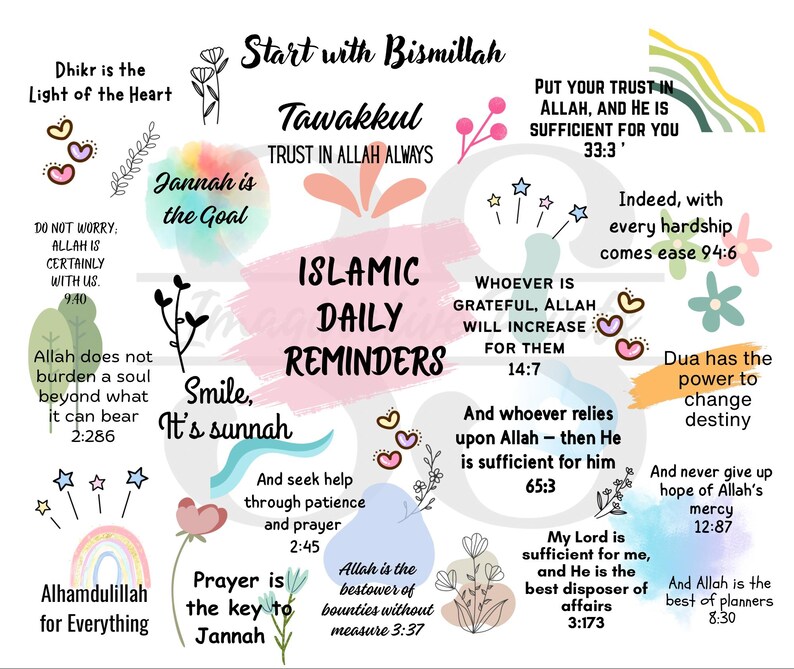 Start with Bismillah
Dhikr is the
Light of the Heart
Tawakkul
TRUST IN ALLAH ALWAYS
PUT YOUR TRUST IN
ALLAH, AND HE IS
SUFFICIENT FOR YOU
33:3 '
Jannah is
the Goal
Indeed, with
every hardship
comes ease 94:6
DO NOT WORRY;
ALLAH IS
CERTAINLY
WITH US.
9.40
ISLAMIC
DAILY
REMINDERS
WHOEVER IS
GRATEFUL, ALLAH
WILL INCREASE
FOR THEM
14:7
Allah does not
burden a soul
beyond what
it can bear
2:286
Smile,
It's sunnah
Dua has the
power to
change
destiny
And whoever relies
upon Allah – then He
is sufficient for him
65:3
And seek help
through patience
and prayer
2:45
And never give up
hope of Allah's
mercy
12:87
My Lord is
sufficient for me,
and He is the
best disposer of
affairs
3:173
Alhamdulillah
for Everything
Prayer is
the key to
Jannah
Allah is the
bestower of
bounties without
measure 3:37
And Allah is the
best of planners
8:30